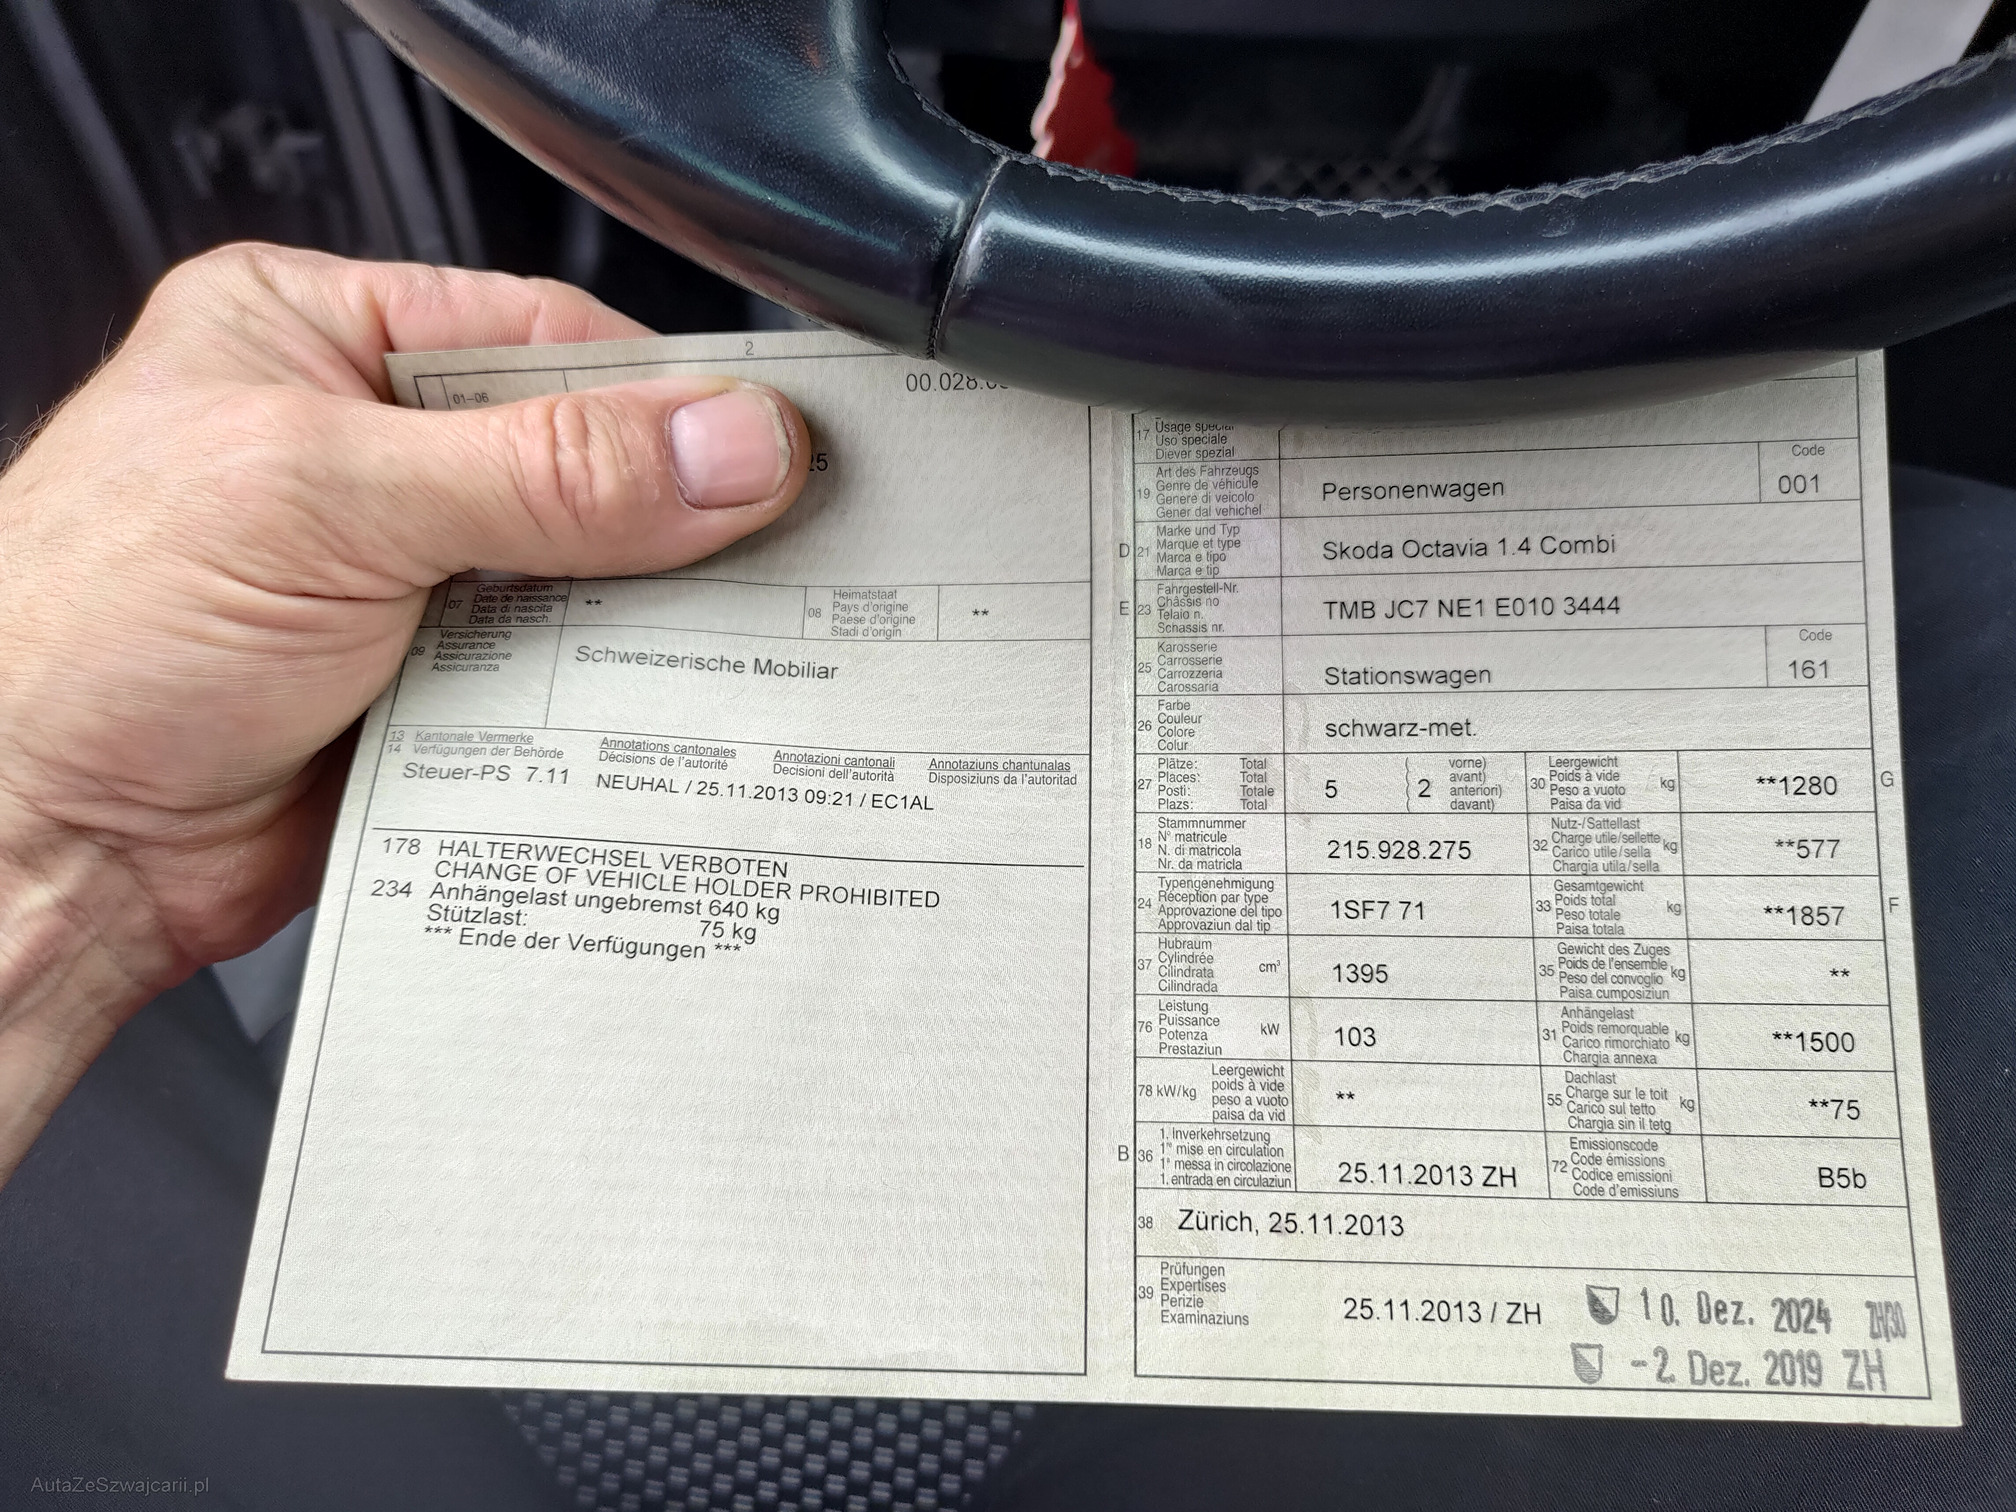 2
01–06
00.028.
25
07 Geburtsdatum
Date de naissance
Data di nascita
Data da nasch.
**
08 Heimatstaat
Pays d'origine
Paese d'origine
Stadi d'origin
**
09 Versicherung
Assurance
Assicurazione
Assicuranza
Schweizerische Mobiliar
13 Kantonale Vermerke Annotations cantonales Annotazioni cantonali Annotaziuns chantunalas
14 Verfügungen der Behörde Décisions de l'autorité Decisioni dell'autorità Disposiziuns da l'autoritad
Steuer-PS 7.11 NEUHAL / 25.11.2013 09:21 / EC1AL
178 HALTERWECHSEL VERBOTEN
CHANGE OF VEHICLE HOLDER PROHIBITED
234 Anhängelast ungebremst 640 kg
Stützlast: 75 kg
*** Ende der Verfügungen ***
17 Usage special
Uso speciale
Diever spezial
19 Art des Fahrzeugs
Genre de véhicule
Genere di veicolo
Gener dal vehichel
Personenwagen
Code
001
D 21 Marke und Typ
Marque et type
Marca e tipo
Marca e tip
Skoda Octavia 1.4 Combi
E 23 Fahrgestell-Nr.
Châssis no
Telaio n.
Schassis nr.
TMB JC7 NE1 E010 3444
25 Karosserie
Carrosserie
Carrozzeria
Carossaria
Stationswagen
Code
161
26 Farbe
Couleur
Colore
Colur
schwarz-met.
27 Plätze: Total
Places: Total
Posti: Totale
Plazs: Total
5
2
vorne)
avant)
anteriori)
davant)
30 Leergewicht
Poids à vide
Peso a vuoto
Paisa da vid
kg
**1280
G
18 Stammnummer
N° matricule
N. di matricola
Nr. da matricla
215.928.275
32 Nutz-/Sattellast
Charge utile/sellette
Carico utile/sella
Chargia utila/sella
kg
**577
24 Typengenehmigung
Réception par type
Approvazione del tipo
Approvaziun dal tip
1SF7 71
33 Gesamtgewicht
Poids total
Peso totale
Paisa totala
kg
**1857
F
37 Hubraum
Cylindrée
Cilindrata
Cilindrada
cm³
1395
35 Gewicht des Zuges
Poids de l'ensemble
Peso del convoglio
Paisa cumposiziun
kg
**
76 Leistung
Puissance
Potenza
Prestaziun
kW
103
31 Anhängelast
Poids remorquable
Carico rimorchiato
Chargia annexa
kg
**1500
78 kW/kg
Leergewicht
poids à vide
peso a vuoto
paisa da vid
**
55 Dachlast
Charge sur le toit
Carico sul tetto
Chargia sin il tetg
kg
**75
B 36 1. Inverkehrsetzung
1re mise en circulation
1a messa in circolazione
1. entrada en circulaziun
25.11.2013 ZH
72 Emissionscode
Code émissions
Codice emissioni
Code d'emissiuns
B5b
38 Zürich, 25.11.2013
39 Prüfungen
Expertises
Perizie
Examinaziuns
25.11.2013 / ZH
10. Dez. 2024 ZH/30
-2. Dez. 2019 ZH
AutaZeSzwajcarii.pl